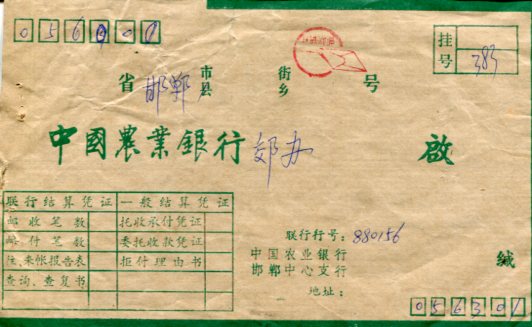 056001
挂号 383
省 邯郸 市县 街乡 号
中國農業銀行 郊办 啟
联行结算凭证 一般结算凭证
邮收笔数 托收承付凭证
邮付笔数 委托收款凭证
往、来帐报告表 拒付理由书
查询、查复书
联行行号：880156
中国农业银行
邯郸中心支行 缄
地址：
056301